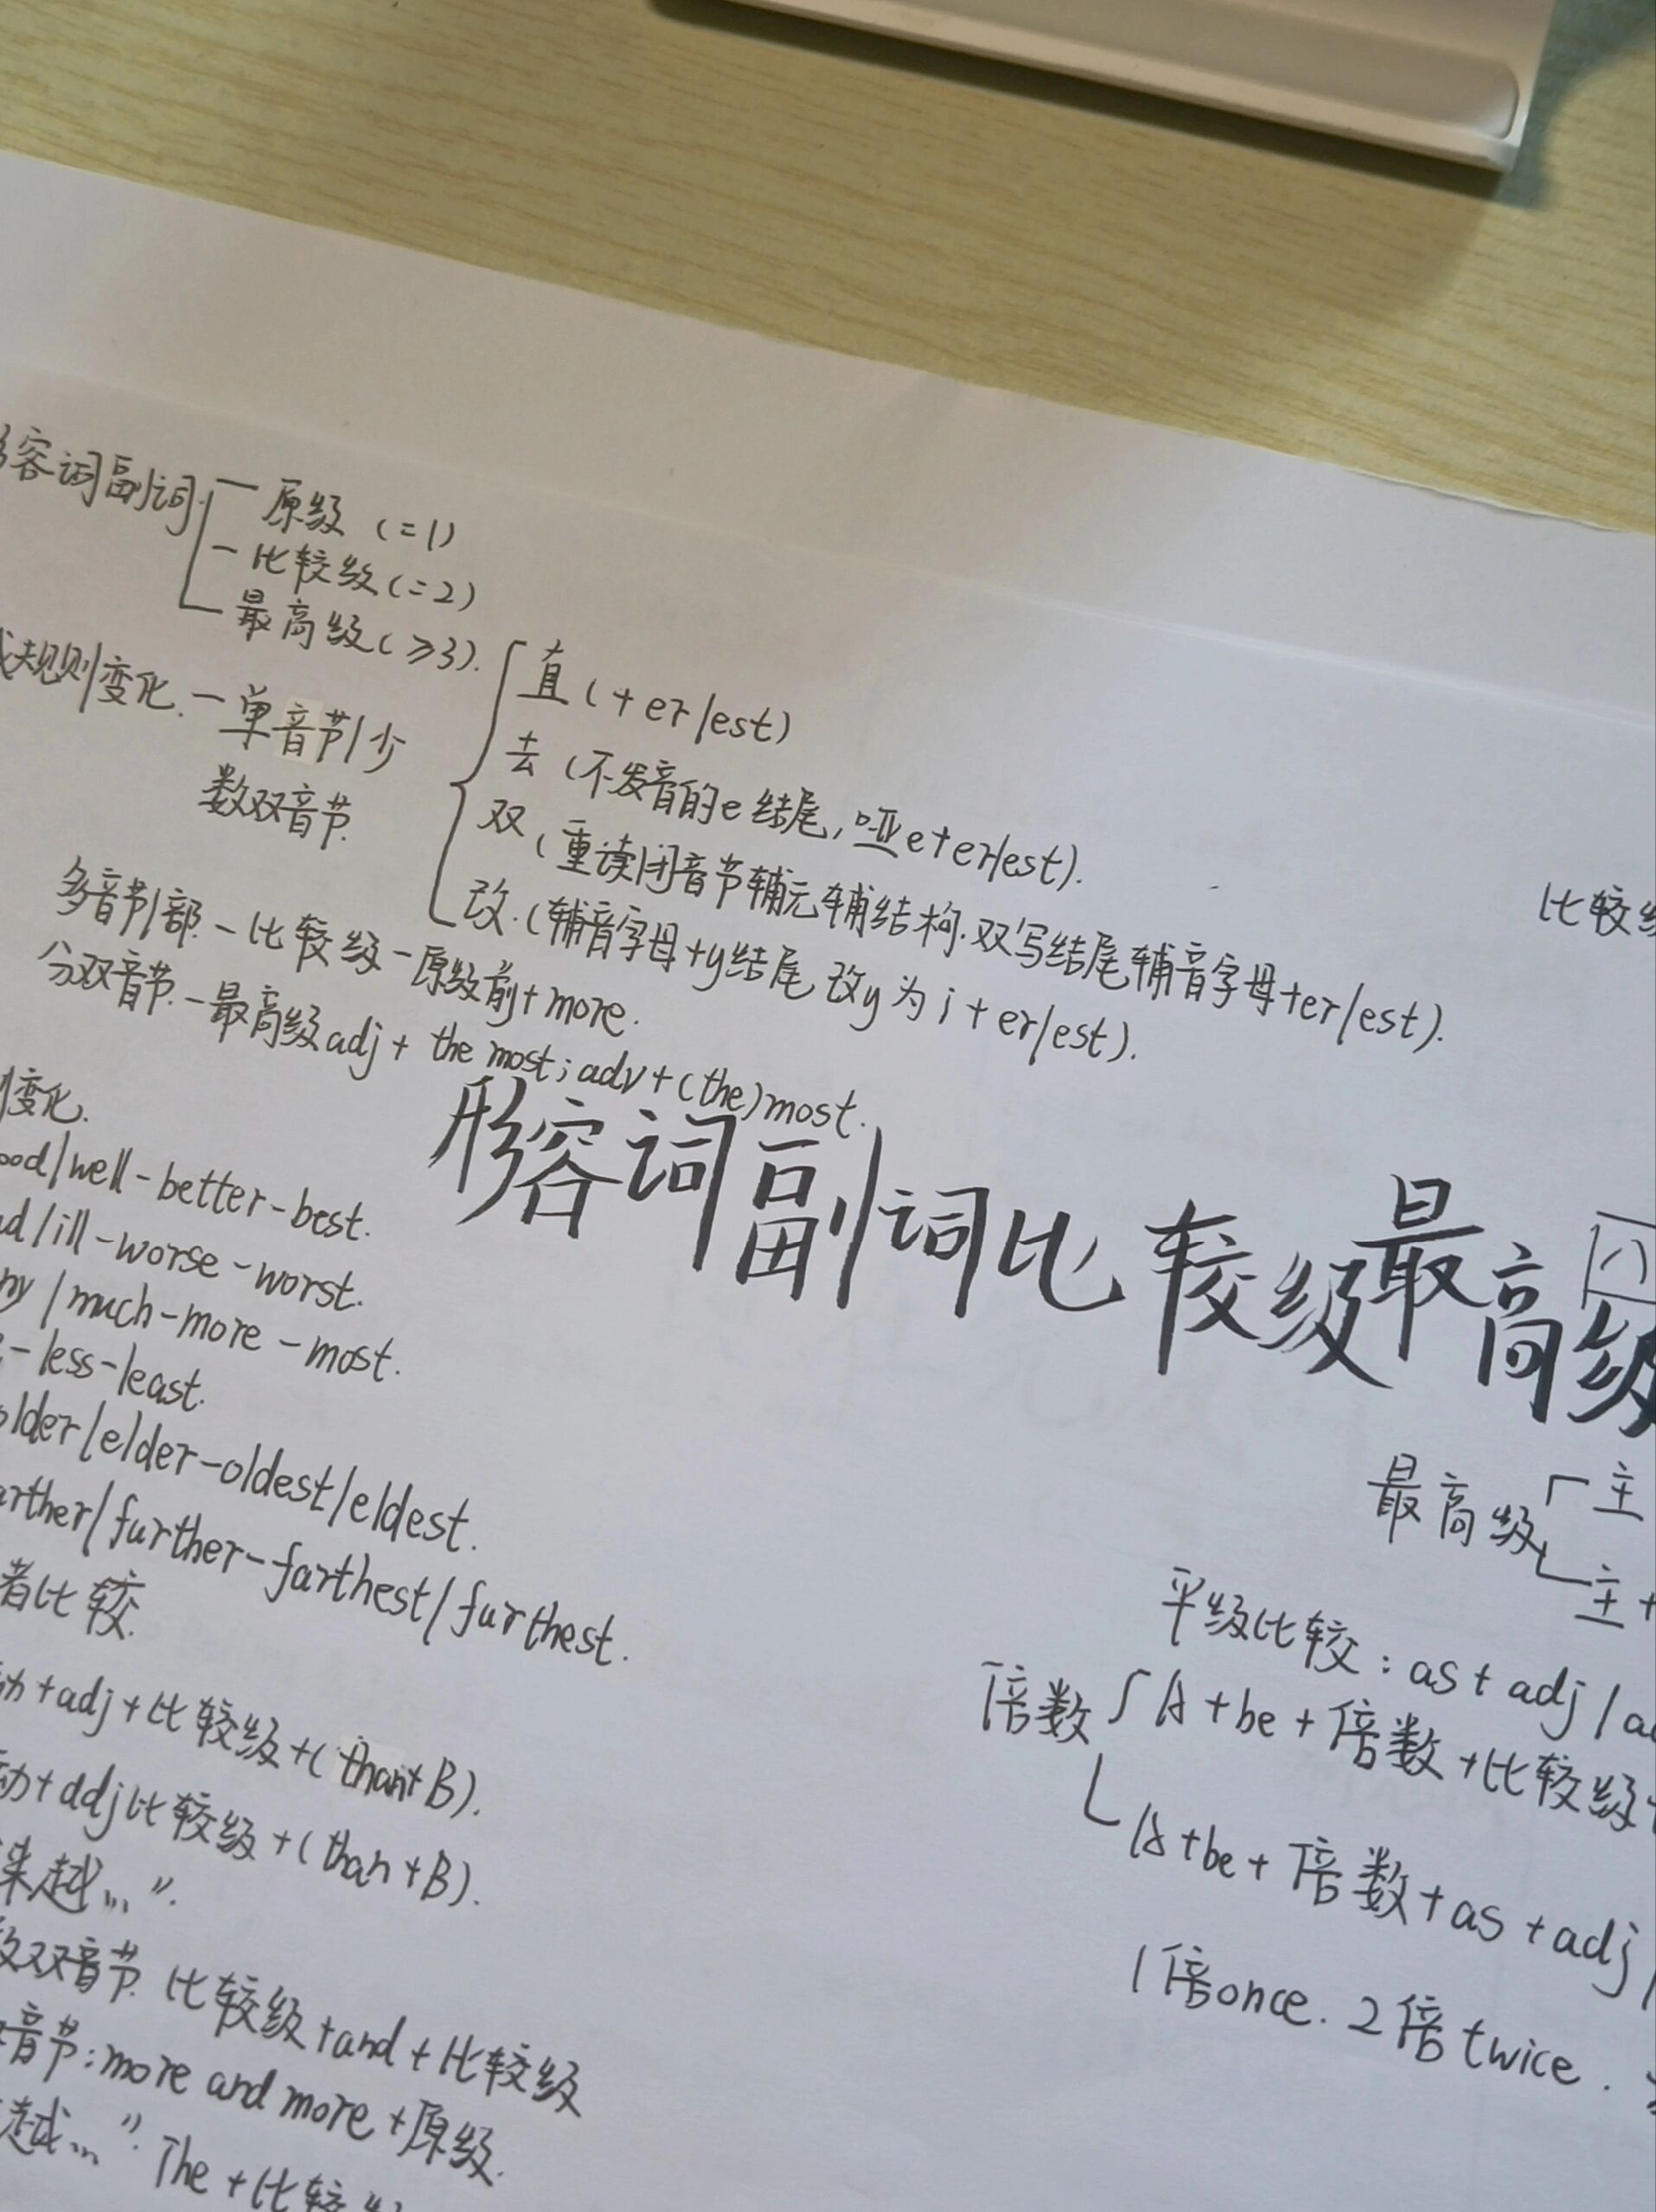 容词副词
原级 (=1)
比较级(=2)
最高级(≥3).
规则变化.一单音节/少
数双音节.
直(+er/est)
去(不发音的e结尾,哑e+er/est).
双(重读闭音节辅元辅结构.双写结尾辅音字母+er/est).
改.(辅音字母+y结尾改y为i+er/est).
多音节/部-比较级-原级前+more.
分双音节.-最高级adj+ the most; adv+(the)most.
变化.
形容词副词比较级最高级
ood/well-better-best.
d/ill-worse-worst.
ny/much-more-most.
-less-least.
older/elder-oldest/eldest.
arther/further-farthest/furthest.
者比较.
动+adj+比较级+(than+B).
动+adj比较级+(than+B).
来越...".
双音节.比较级+and+比较级
音节:more and more+原级.
越..." The+比较级
比较级
八
最高级
主
主+
平级比较:as+adj/ad
倍数
A+be+倍数+比较级+
A+be+倍数+as+adj/
1倍once.2倍twice.